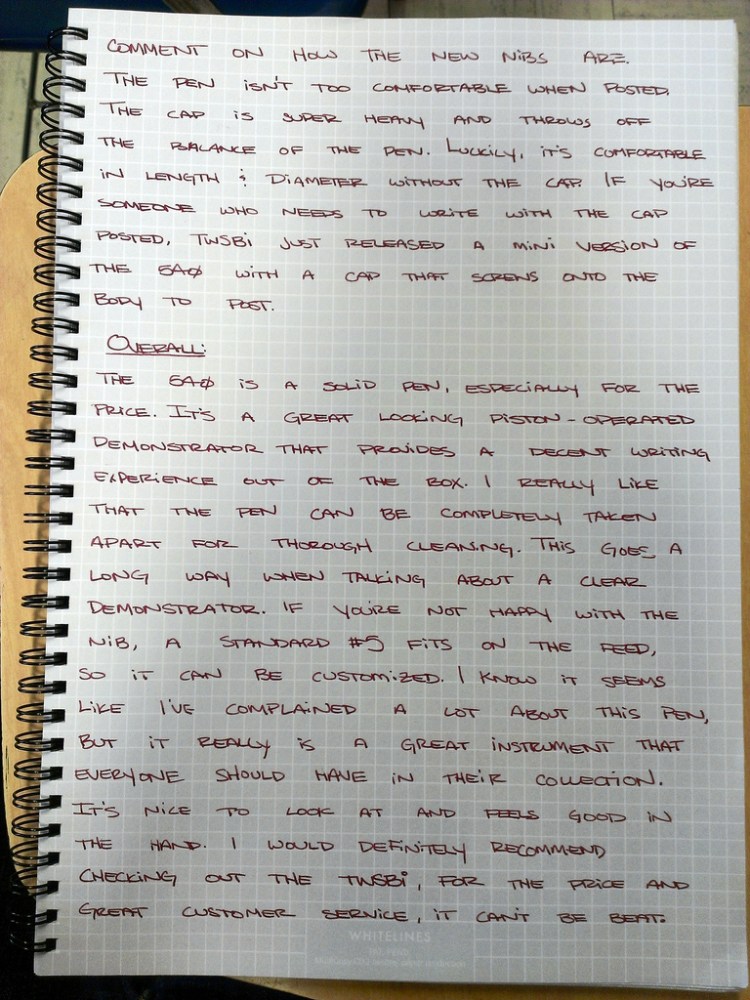 COMMENT ON HOW THE NEW NIBS ARE.
THE PEN ISN'T TOO COMFORTABLE WHEN POSTED.
THE CAP IS SUPER HEAVY AND THROWS OFF
THE BALANCE OF THE PEN. LUCKILY, IT'S COMFORTABLE
IN LENGTH & DIAMETER WITHOUT THE CAP. IF YOU'RE
SOMEONE WHO NEEDS TO WRITE WITH THE CAP
POSTED, TWSBI JUST RELEASED A MINI VERSION OF
THE 540 WITH A CAP THAT SCREWS ONTO THE
BODY TO POST.
OVERALL:
THE 540 IS A SOLID PEN, ESPECIALLY FOR THE
PRICE. IT'S A GREAT LOOKING PISTON-OPERATED
DEMONSTRATOR THAT PROVIDES A DECENT WRITING
EXPERIENCE OUT OF THE BOX. I REALLY LIKE
THAT THE PEN CAN BE COMPLETELY TAKEN
APART FOR THOROUGH CLEANING. THIS GOES A
LONG WAY WHEN TALKING ABOUT A CLEAR
DEMONSTRATOR. IF YOU'RE NOT HAPPY WITH THE
NIB, A STANDARD #5 FITS ON THE FEED,
SO IT CAN BE CUSTOMIZED. I KNOW IT SEEMS
LIKE I'VE COMPLAINED A LOT ABOUT THIS PEN,
BUT IT REALLY IS A GREAT INSTRUMENT THAT
EVERYONE SHOULD HAVE IN THEIR COLLECTION.
IT'S NICE TO LOOK AT AND FEELS GOOD IN
THE HAND. I WOULD DEFINITELY RECOMMEND
CHECKING OUT THE TWSBI, FOR THE PRICE AND
GREAT CUSTOMER SERVICE, IT CAN'T BE BEAT.
WHITELINES